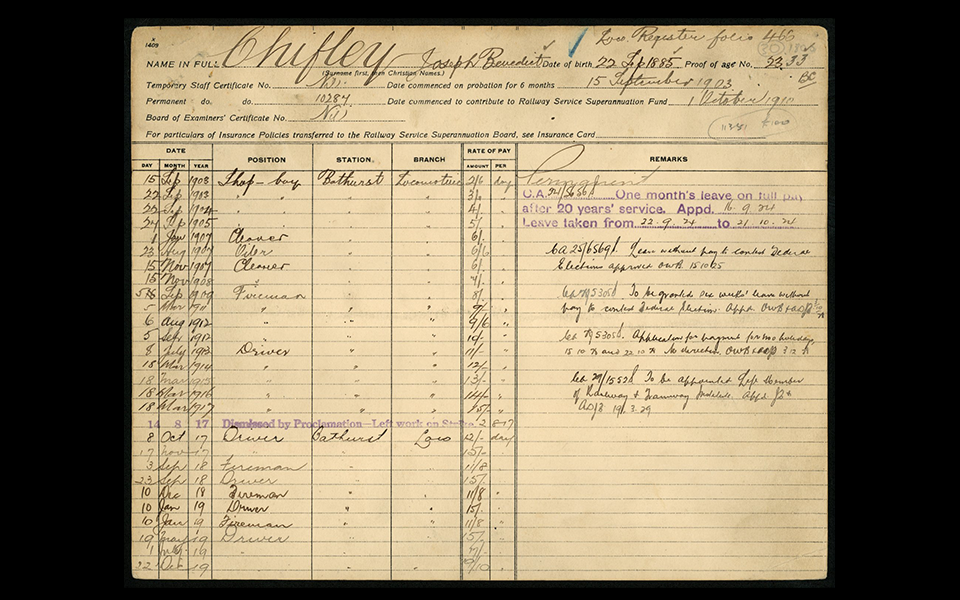 Loco. Register folio 466
1409
NAME IN FULL Chifley Joseph Benedict Date of birth 22 Sep 1885 Proof of age No. 23.33
(Surname first, then Christian Names.)
BC
Temporary Staff Certificate No. Nil Date commenced on probation for 6 months 15 September 1903
Permanent do. do. 10284 Date commenced to contribute to Railway Service Superannuation Fund 1 October 1910
Board of Examiners' Certificate No. Nil
For particulars of Insurance Policies transferred to the Railway Service Superannuation Board, see Insurance Card
DATE POSITION STATION BRANCH RATE OF PAY REMARKS
DAY MONTH YEAR AMOUNT PER
15 Sep 1903 Shop-boy Bathurst Locomotive 2/6 day Permanent
22 Sep 1903 " 3/- "
C.A. One month's leave on full pay
22 Sep 1904 " 4/- "
after 20 years' service. Appd. 16.9.24
24 Sep 1905 " 5/- "
Leave taken from 22.9.24 to 21.10.24
1 Jan 1907 Cleaner 6/-
23 Aug 1907 Oiler 6/6 "
CA 25/6569 Leave without pay to contest Federal
15 Nov 1907 Cleaner 6/-
Elections approved 15 10 25
15 Nov 1908 7/- "
5 Sep 1909 Fireman 8/- "
To be granted six weeks' leave without
5 Mar 1911 " 9/- "
pay to contest Federal Election. Appd.
6 Aug 1912 " 9/6 "
5 Sep 1912 " 10/- "
Application for payment for two holidays,
8 July 1913 Driver 11/- "
No direction.
18 Mar 1914 " 12/- "
18 Mar 1915 " 13/- "
CA 29/1552 To be appointed Left Member
18 Mar 1916 " 14/- "
of Railway & Tramway Institute. Appd
18 Mar 1917 " 15/- "
19.3.29
14 8 17 Dismissed by Proclamation—Left work on Strike 2 8 17
8 Oct 17 Driver Bathurst Loco 12/- day
17 Nov 17 " 15/-
3 Sep 18 Fireman 11/8 "
23 Sep 18 Driver 15/-
10 Dec 18 Fireman " " 11/8 "
10 Jan 19 Driver " " 15/-
10 Jan 19 Fireman " " 11/8 "
19 May 19 Driver 15/- "
1 July 19
22 Oct 19